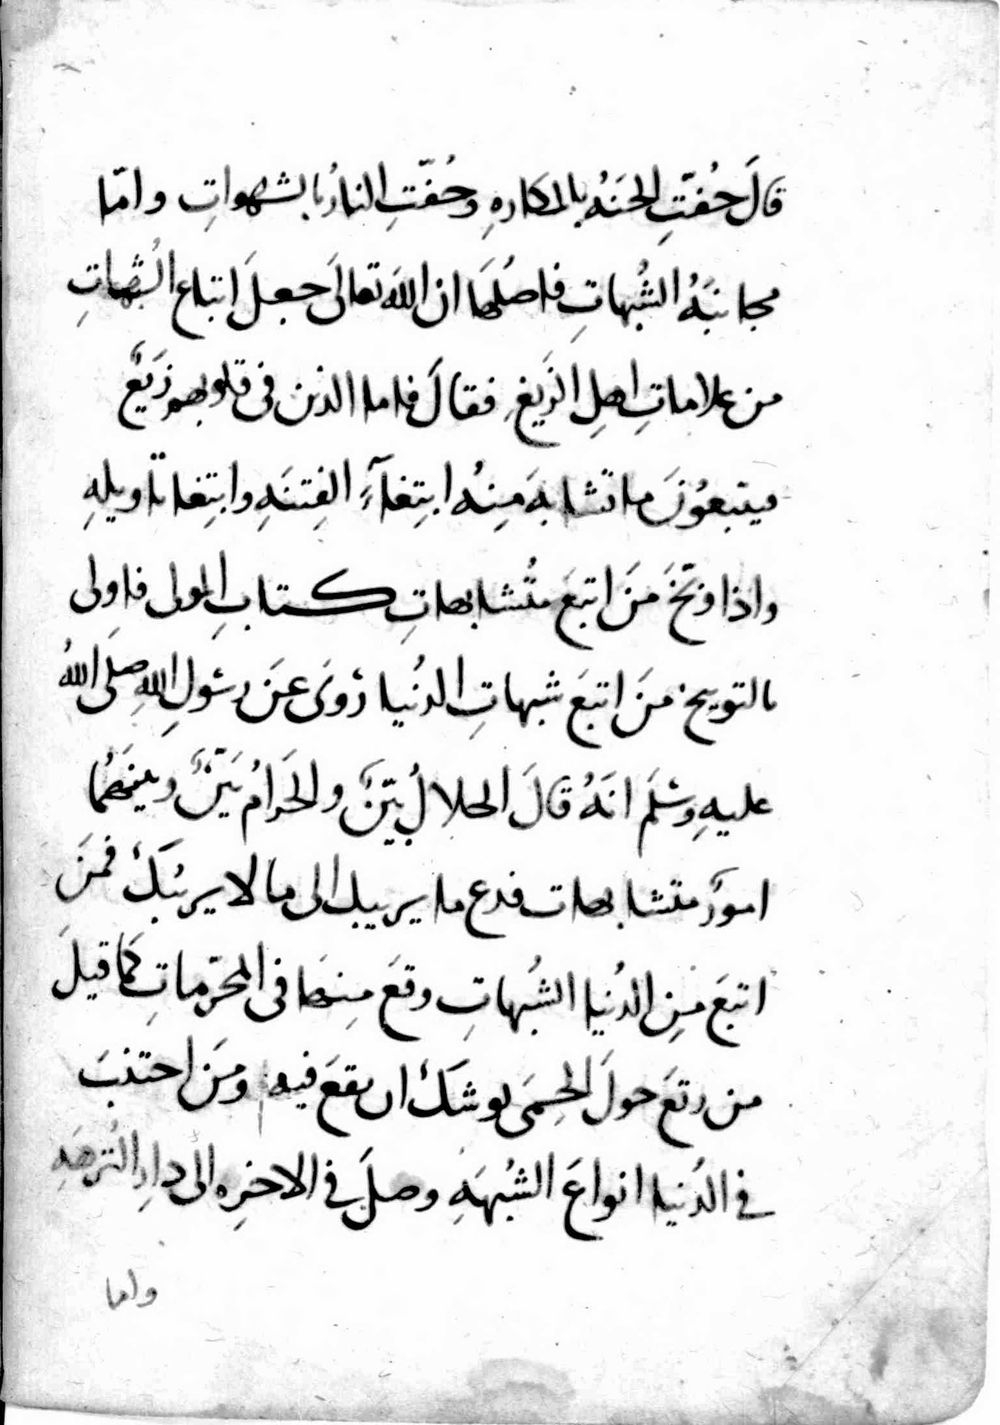 قالَ حُفّتِ الجنَهُ بالمكارهِ وحُفّتِ النارُ بالشهواتِ وامّا
مجانبَهُ الشُبهاتِ فاصُلهَا ان اللهَ تعالىَ جعلَ اتباع الشُبهاتِ
من علاماتِ اهلِ الزَيغِ فقالَ فاما الذين فى قلوبهم زَيغٌ
فيتبعوُنَ ما تشابهَ مِنهُ ابتِغآءِ الفِتنَهِ وابتِغا تاويلهِ
واذا وبّخَ مَن اتبعَ مُتشابهاتِ كتابِ المولى فاولى
بالتوبيخ مَن اتبعَ شبهاتِ الدُنيا رُوىَ عَن رسُولِ اللهِ صلى اللهُ
عليهِ وسلَم انهُ قالَ الحلالُ بيّنٌ والحَرامُ بَيّنٌ وبينهُما
امورٌ متشابهات فدع ما يريبك الى ما لا يريبُكَ فمَن
اتبعَ مِن الدُنيا الشُبهاتِ وقعَ مِنهَا فى المحرّماتِ كمَا قيلَ
من رتعَ حولَ الحِمَى يوشكُ ان يقعَ فيهِ ومَن اجتنبَ
فى الدُنيا انواعَ الشُبهَهِ وصلَ فى الاخرِه الى دارِ النُزهَهِ
واما